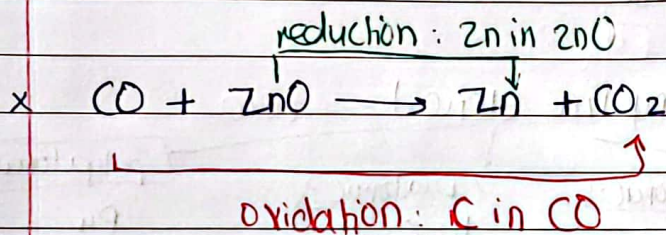 reduction : Zn in ZnO
× CO + ZnO → Zn + CO₂
oxidation : C in CO